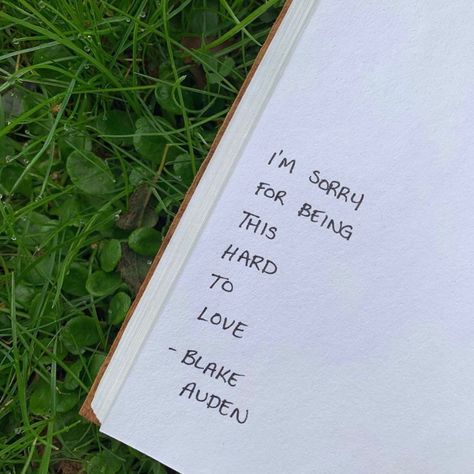 I'M SORRY
FOR BEING
THIS
HARD
TO
LOVE
- BLAKE
AUDEN